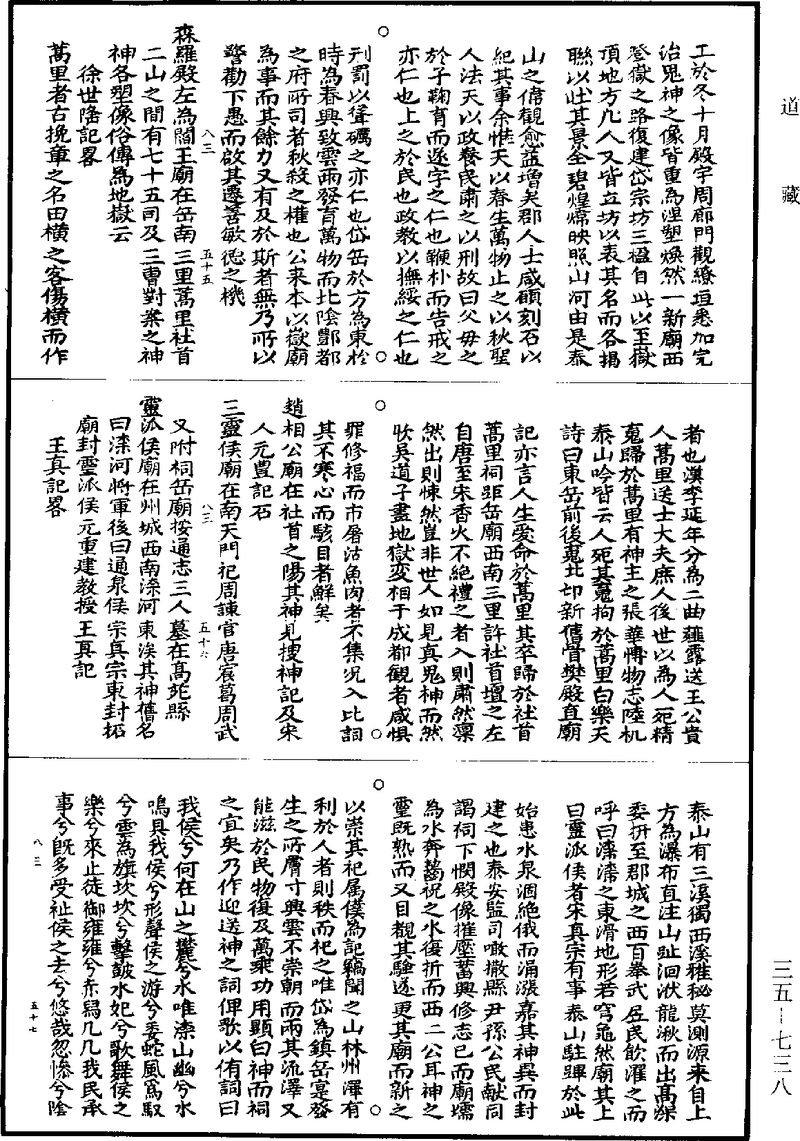 道藏
工於冬十月殿宇周廊門觀繚垣悉加完
治鬼神之像皆重為浧塑煥然一新廟西
登嶽之路復建岱宗坊三楹自此以至嶽
頂地方凡人又皆立坊以表其名而各揭
聯以壯其景全碧煌煌映照山河由是泰
山之偉觀愈益增矣郡人士咸碩刻石以
紀其事余惟天以春生萬物止之以秋聖
人法天以政養民肅之以刑故曰父母之
於子鞠育而逐字之仁也鞭朴而告戒之
亦仁也上之於民也政教以撫綏之仁也
刑罰以聳礪之亦仁也岱岳於方為東於
時為春興致雲雨發育萬物而北陰酆都
之府所司者秋殺之權也公来本以嶽廟
為事而其餘力又有及於斯者無乃所以
警勸下愚而啟其遷善敏德之機
八三
五十五
森羅殿左為閻王廟在岳南三里蒿里社首
二山之間有七十五司及三曹對案之神
神各塑像俗傳為地獄云
徐世隆記畧
蒿里者古挽章之名田橫之客傷橫而作
者也漢李延年分為二曲薤露送王公貴
人蒿里送士大夫庶人後世以為人死精
䰟歸於蒿里有神主之張華博物志陸机
泰山吟皆云人死其䰟拘於蒿里白樂天
詩曰東岳前後䰟北邙新舊骨樊殿直廟
記亦言人生受命於蒿里其卒歸於社首
蒿里祠距岳廟西南三里許社首壇之左
自唐至宋香火不絶禮之者入則肅然凛
然出則悚然豈非世人如見真鬼神而然
㰤吳道子畫地獄变相于成都觀者咸惧
罪修福而市屠沽魚肉者不集况入比詞
其不寒心而駭目者鮮矣
趙相公廟在社首之陽其神見搜神記及宋
人元豊記石
三靈侯廟在南天門祀周諫官唐宸葛周武
八三
五十六
又附祠岳廟按通志三人墓在高苑縣
靈派侯廟在州城西南滦河東涘其神舊名
曰滦河將軍後曰通泉侯宗真宗東封拓
廟封靈派侯元重建教授王真記
王真記畧
泰山有三溪獨西溪稚秘莫測源来自上
方為瀑布直注山趾洄洑龍湫而出髙深
委折至郡城之西百拳武居民飲濯之而
呼曰溁濟之東滑地形若穹龜然廟其上
曰靈派侯者宋真宗有事泰山駐驆於此
始患水泉涸絶俄而涌漲嘉其神異而封
建之也泰安監司噉撒縣尹孫公民献同
謁祠下憫殿像摧壓蓄興修志已而廟壖
為水奔蕩祝之水復折而西二公耳神之
靈既熟而又目觀其驗遂更其廟而新之
以崇其祀属僕為記竊聞之山林州澤有
利於人者則秩而祀之唯岱為鎮岳寔發
生之所膚寸興雲不崇朝而雨其流澤又
能滋於民物復及萬乘功用顯白神而祠
之宜矣乃作迎送神之詞俾歌以侑詞曰
我侯兮何在山之麓兮水唯滦山幽兮水
鳴具我侯兮形聲侯之游兮委蛇風為馭
兮雲為旗坎坎兮擊皷水妃兮歌舞侯之
樂兮來止徒御雍雍兮赤舄几几我民承
事兮旣多受祉侯之去兮悠哉忽慘兮陰
八三
五十七
三五-七三八